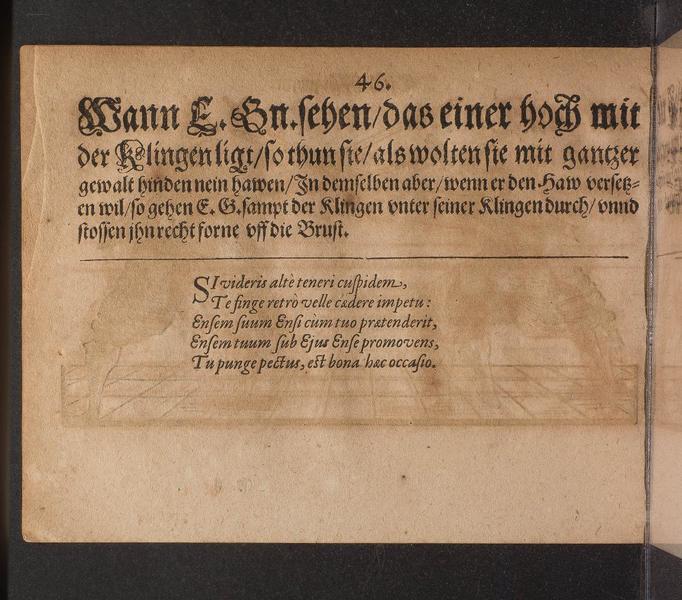 46.
Wann E. Gn. sehen/das einer hoch mit
der Klingen ligt/so thun sie/als wolten sie mit gantzer
gewalt hinden nein hawen/Jn demselben aber/wenn er den Haw versetz=
en wil/so gehen E. G. sampt der Klingen vnter seiner Klingen durch/vnnd
stossen jhn recht forne vff die Brust.
SI videris altè teneri cuspidem,
Te finge retrò velle cædere impetu:
Ensem suum Ensi cùm tuo prætenderit,
Ensem tuum sub Ejus Ense promovens,
Tu punge pectus, est bona hæc occasio.